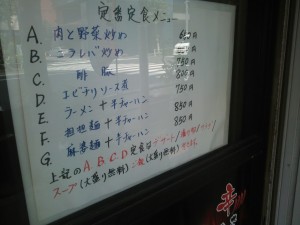 定番定食メニュー
A. 肉と野菜炒め 円
B. ニラレバ炒め 750円
C. 酢豚 円
D. エビチリソース煮 750円
E. ラーメン+半チャーハン 円
F. 担担麺+半チャーハン 850円
G. 麻婆麺+半チャーハン 850円
上記のA.B.C.D定食は デザート/
スープ(大盛り無料)ご飯(大盛り無料)
辛